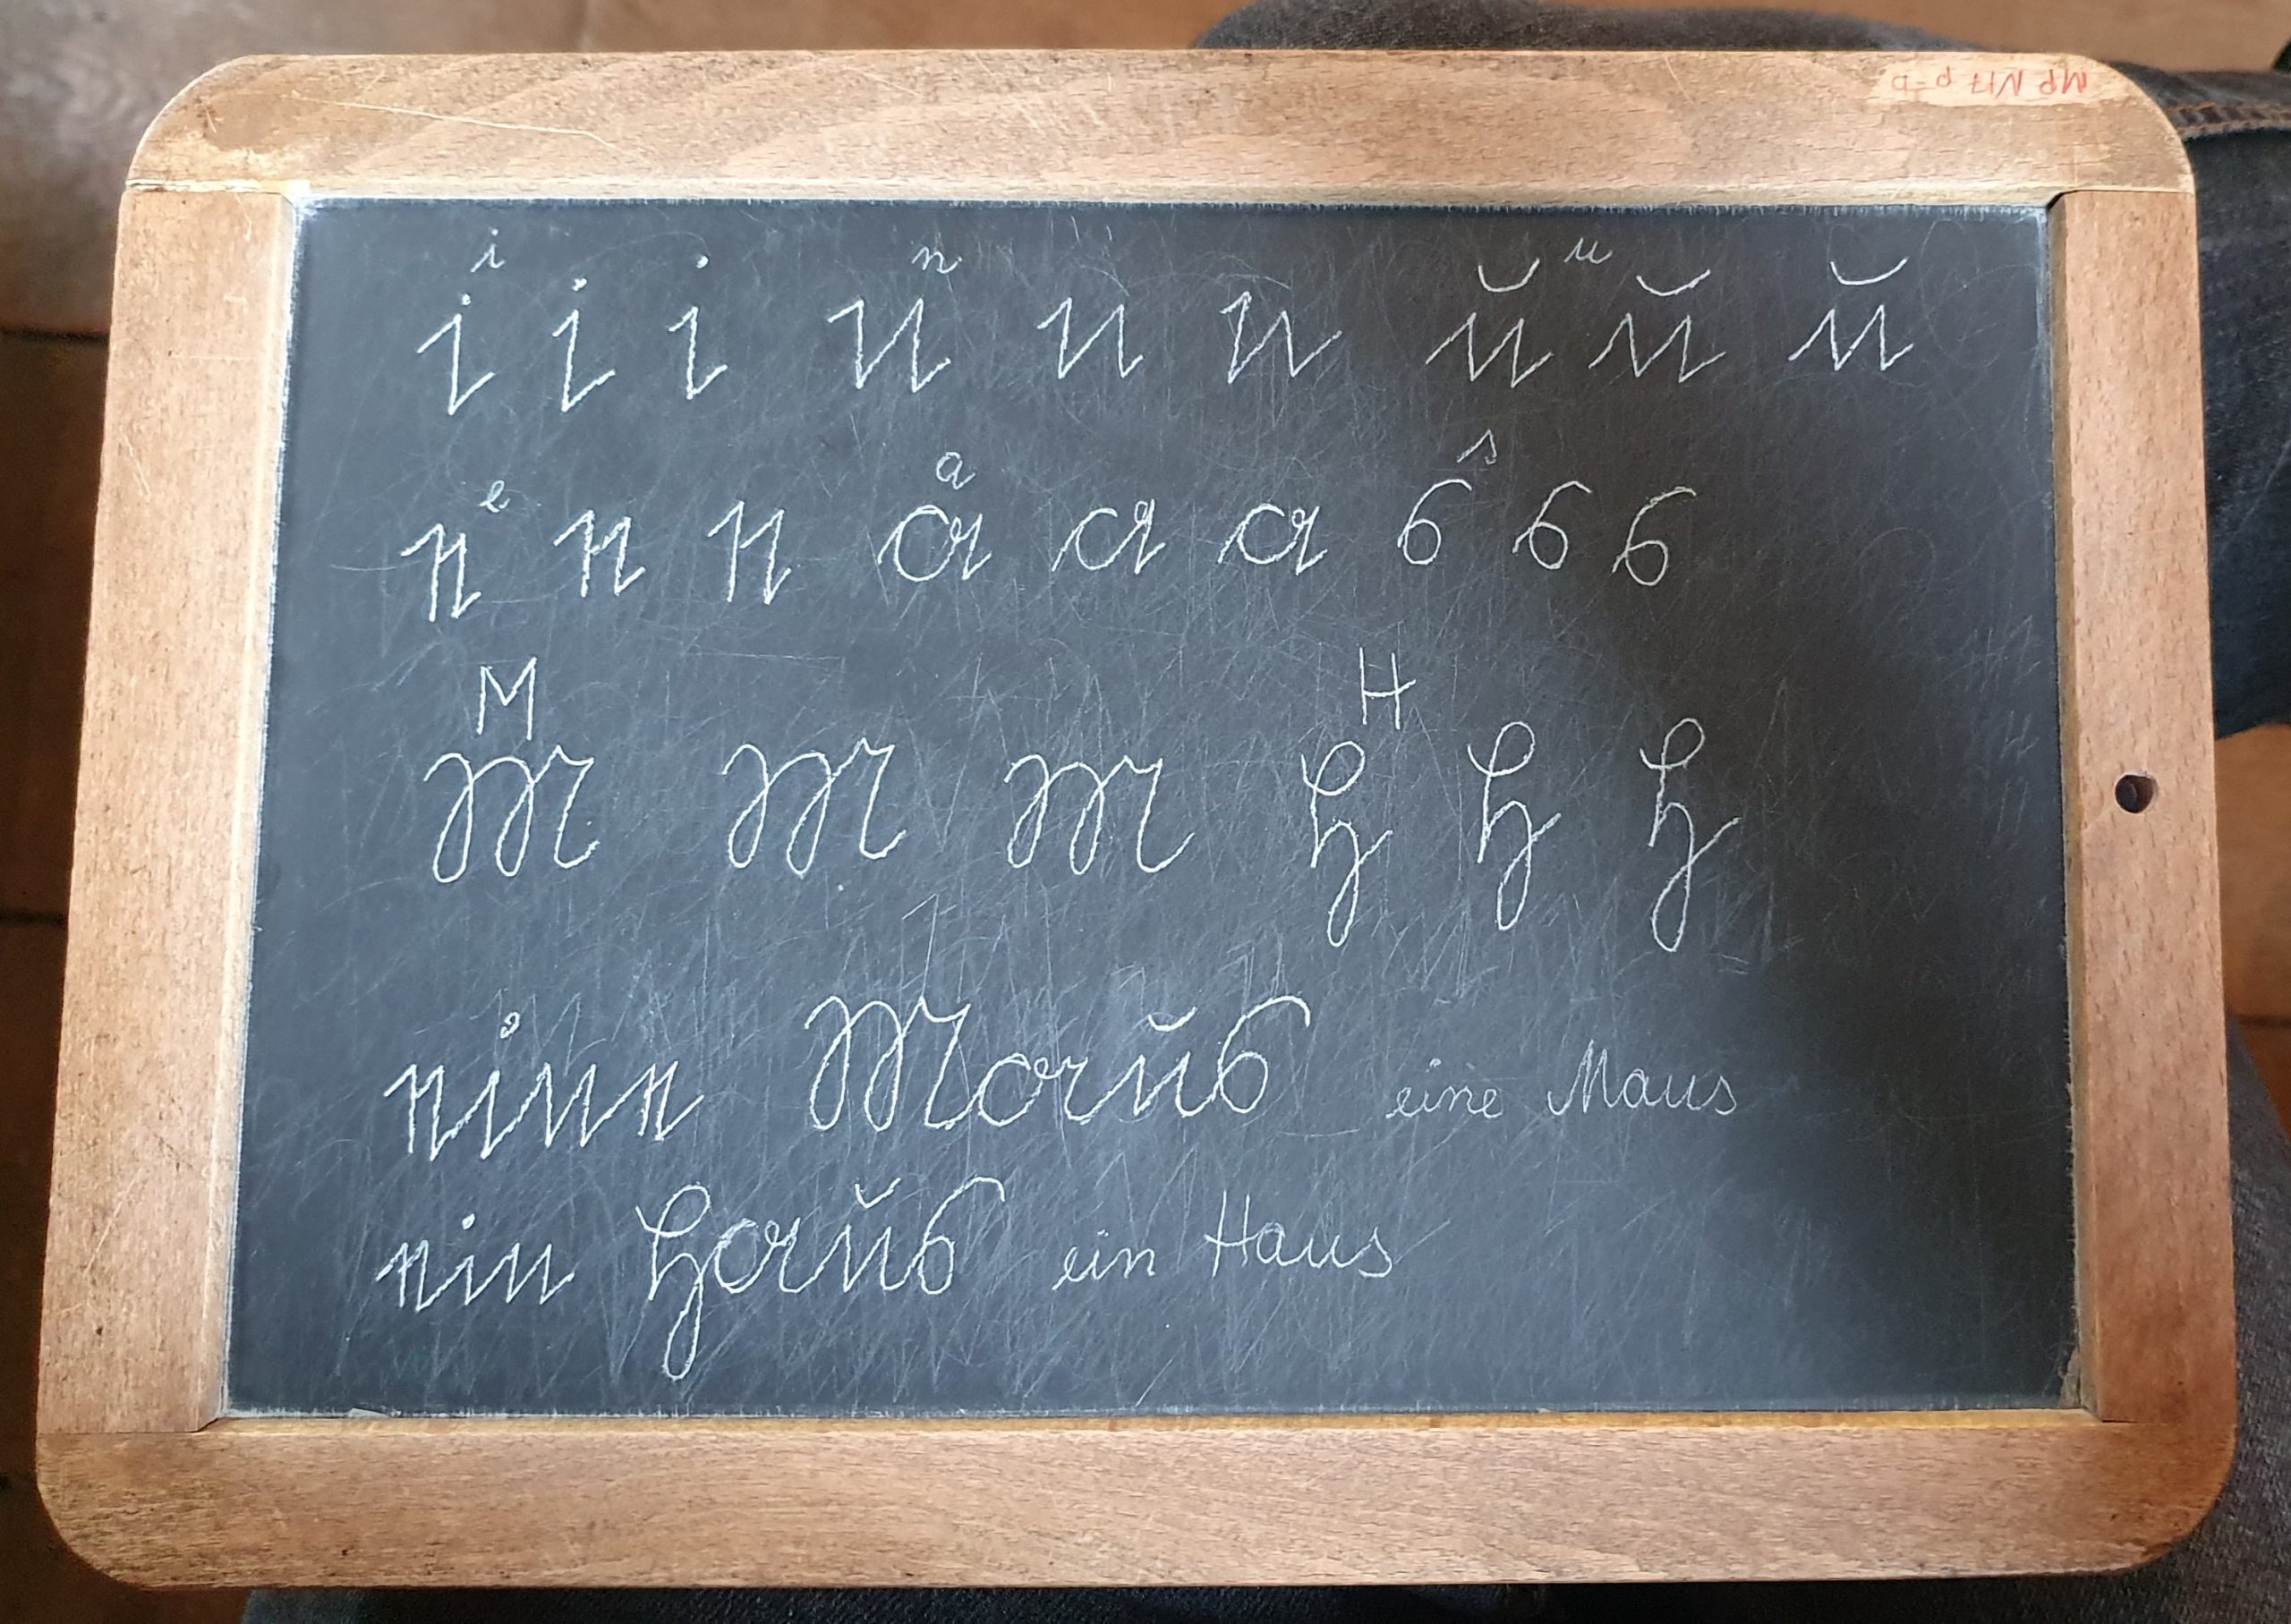 MP N17 p=D
i n u
i i i n n n u u u
e a s
e e e a a a s s s
M H
M M M H H H
eine Maus eine Maus
ein Haus ein Haus